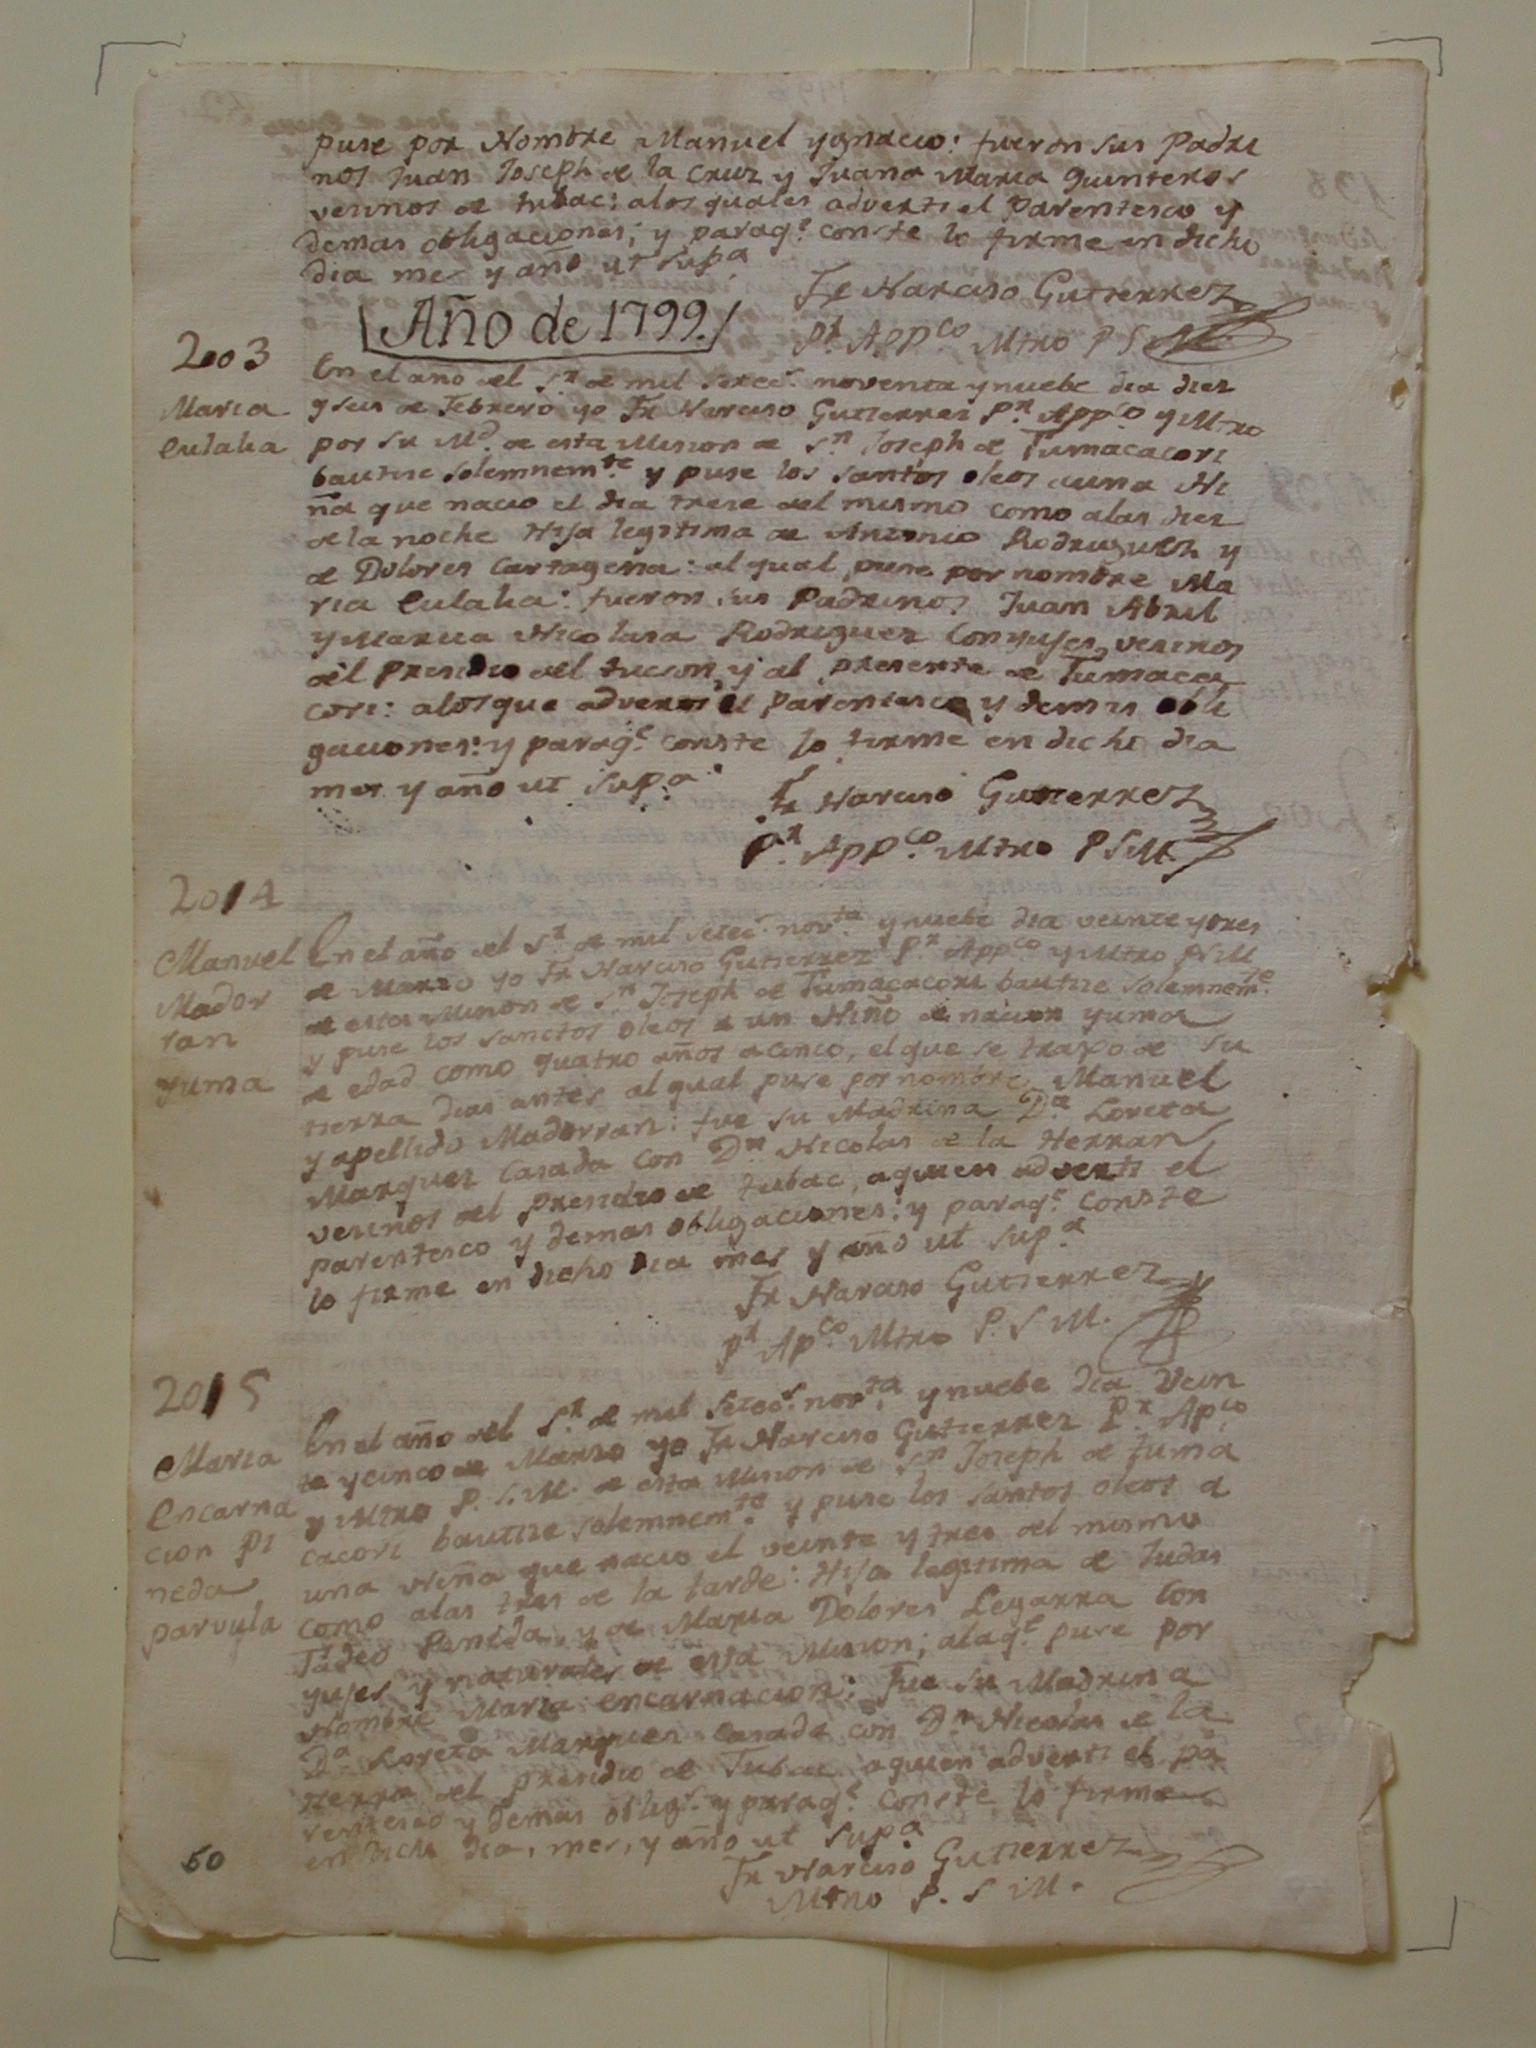 puse por Nombre Manuel Ygnacio: fueron sus Padri
nos Juan Joseph de la Cruz y Juana Maria Quinteros
vesinos de tubac: alos quales adverti el Parentesco y
demas obligaciones; y paraq.e conste lo firme en dicho
dia mes y año ut sup.a
Fr Narciso Gutierrez
Pr App.co Mtro P S M
Año de 1799.
2003
Maria
Eulalia
En el año del S.r de mil setec.s noventa y nuebe dia diez
y seis de Febrero yo Fr Narciso Gutierrez P.r App.co y Mtro
por Su M.d de esta Mision de S.n Joseph de Tumacacori
bautize solemnem.te y puse los santos oleos a una Ni
ña que nacio el dia trese del mismo como alas diez
de la noche Hija legitima de Antonio Rodriguez y
de Dolores Cartagena: al qual puse por nombre Ma
ria Eulalia: fueron sus Padrinos Juan Abril
y Maria Nicolasa Rodriguez Conyujes, vesinos
del Presidio del tucson, y al presente de Tumaca
cori: alos que adverti el Parentesco y demas obli
gaciones: y paraq.e conste lo firme en dicho dia
mes y año ut sup.a
Fr Narciso Gutierrez
P.r App.co Mtro P S M
2014
Manuel
Mador
ran
yuma
En el año del S.r de mil setec.s nov.ta y nuebe dia veinte y tres
de Marzo yo Fr Narciso Gutierrez P.r App.co y Mtro P S M
de esta Mision de S.n Joseph de Tumacacori bautize solemnem.te
y puse los sanctos oleos a un Niño de nacion yuma
de edad como quatro años a cinco, el que se trajo de su
tierra dias antes al qual puse por nombre Manuel
y apellido Madorran: fue su Madrina D.a Loreta
Marquez Casada con D.n Nicolas de la Herran
vesiños del Presidio de tubac, a quien adverti el
parentesco y demas obligaciones: y paraq.e conste
lo firme en dicho dia mes y año ut sup.a
Fr Narciso Gutierrez
P.r Ap.co Mtro P. S M.
2015
Maria
Encarna
cion Pi
neda
parvula
En el año del S.r de mil setec.s nov.ta y nuebe dia Vein
te y cinco de Marzo yo Fr Narciso Gutierrez P.r Ap.co
y Mtro P. S. M. de esta Mision de S.n Joseph de tuma
cacori bautize solemnem.te y puse los santos oleos a
una Niña que nacio el veinte y tres del mismo
como alas tres de la tarde: Hija legitima de Judas
Tadeo Pineda, y de Maria Dolores Legarra Con
yujes y naturales de esta Mision; alaq.e puse por
Nombre Maria Encarnacion: Fue su Madrina
D.a Loreta Marquez Casada con D.n Nicolas de la
Herra del presidio de Tubac a quien adverti el pa
rentesco y demas oblig.s y paraq.e conste lo firme
en dicho dia, mes, y año ut sup.a
Fr Narciso Gutierrez
Mtro P. S M.
50